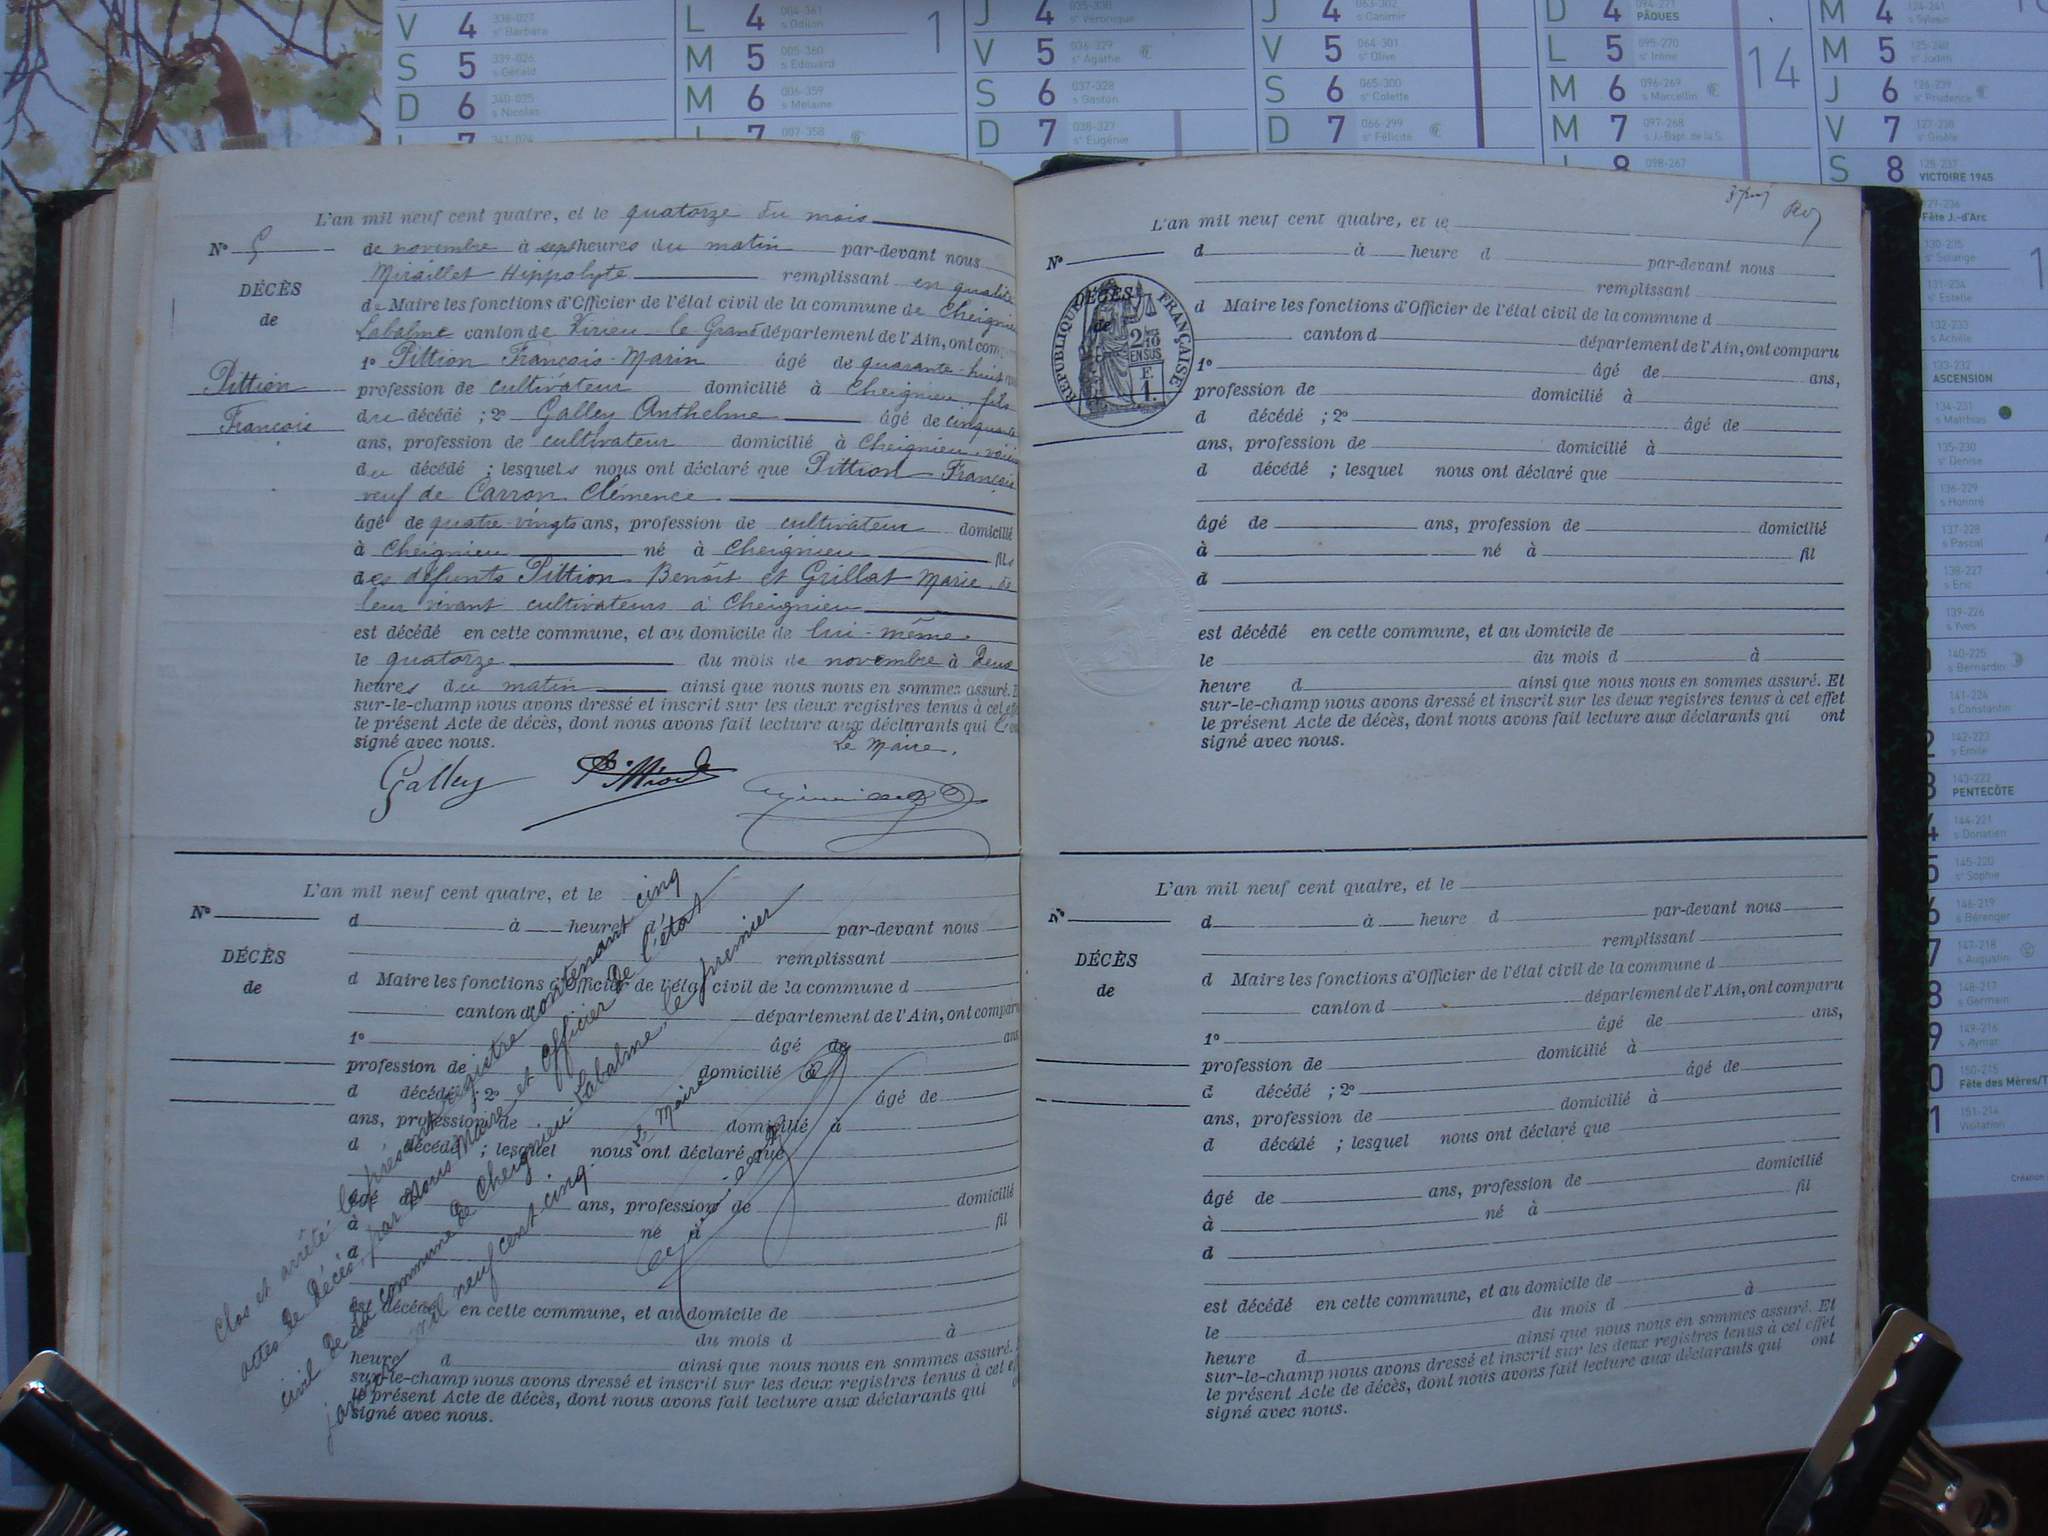 V 4 338-027 sᵗᵉ Barbara
S 5 339-026 s Gérald
D 6 340-025 s Nicolas
7 341-024
L 4 004-361 s Odilon
M 5 005-360 s Edouard
M 6 006-359 s Melaine
7 007-358
1
J 4 035-330 sᵗᵉ Véronique
V 5 036-329 sᵗᵉ Agathe
S 6 037-328 s Gaston
D 7 038-327 sᵗᵉ Eugénie
J 4 063-302 s Casimir
V 5 064-301 sᵗᵉ Olive
S 6 065-300 sᵗᵉ Colette
D 7 066-299 sᵗᵉ Félicité
D 4 094-271 PÂQUES
L 5 095-270 sᵗᵉ Irène
M 6 096-269 s Marcellin
M 7 097-268 s J.-Bapt. de la S.
8 098-267
14
M 4 124-241 s Sylvain
M 5 125-240 sᵗᵉ Judith
J 6 126-239 sᵗᵉ Prudence
V 7 127-238 sᵗᵉ Gisèle
S 8 128-237 VICTOIRE 1945
129-236 Fête J.-d'Arc
130-235 sᵗᵉ Solange
131-234 sᵗᵉ Estelle
132-233 s Achille
133-232 ASCENSION
134-231 s Matthias
135-230 sᵗᵉ Denise
136-229 s Honoré
137-228 s Pascal
138-227 s Eric
139-226 s Yves
140-225 s Bernardin
141-224 s Constantin
2 142-223 s Emile
3 143-222 PENTECÔTE
4 144-221 s Donatien
5 145-220 sᵗᵉ Sophie
6 146-219 s Bérenger
7 147-218 s Augustin
8 148-217 s Germain
9 149-216 s Aymar
0 150-215 Fête des Mères/T
1 151-214 Visitation
Création
L'an mil neuf cent quatre, et le quatorze du mois
Nº 5
de novembre à sept heures du matin par-devant nous
Miraillet Hippolyte remplissant en qualité
DÉCÈS
de
de Maire les fonctions d'Officier de l'état civil de la commune de Cheignieu
Labalme canton de Virieu-le-Grand département de l'Ain, ont com
1º Pittion François-Marin âgé de quarante-huit
Pittion
François
profession de cultivateur domicilié à Cheignieu, fils
du décédé ; 2º Galley Anthelme âgé de cinquante
ans, profession de cultivateur domicilié à Cheignieu, voisin
du décédé ; lesquels nous ont déclaré que Pittion François
veuf de Carron Clémence
âgé de quatre-vingts ans, profession de cultivateur domicilié
à Cheignieu né à Cheignieu fils
des défunts Pittion Benoît et Grillat Marie, de
leur vivant cultivateurs à Cheignieu
est décédé en cette commune, et au domicile de lui-même
le quatorze du mois de novembre à deux
heures du matin ainsi que nous nous en sommes assuré. E
sur-le-champ nous avons dressé et inscrit sur les deux registres tenus à cet effet
le présent Acte de décès, dont nous avons fait lecture aux déclarants qui
signé avec nous.
Le Maire,
Galley
L'an mil neuf cent quatre, et le
Nº
d à heure d par-devant nous
remplissant
DÉCÈS
de
d Maire les fonctions d'Officier de l'état civil de la commune d
canton d département de l'Ain, ont comparu
1º âgé de ans
profession de domicilié à
d décédé ; 2º âgé de
ans, profession de domicilié à
d décédé ; lesquel nous ont déclaré que
âgé de ans, profession de domicilié
à né à fil
d
est décédé en cette commune, et au domicile de
le du mois d à
heure d ainsi que nous nous en sommes assuré.
sur-le-champ nous avons dressé et inscrit sur les deux registres tenus à cet e
le présent Acte de décès, dont nous avons fait lecture aux déclarants qui
signé avec nous.
Clos et arrêté le présent registre contenant cinq
actes de décès, par Nous Maire et officier de l'état
civil de la commune de Cheignieu Labalme, le premier
janvier mil neuf cent cinq.
Le Maire
L'an mil neuf cent quatre, et le
Nº
d à heure d par-devant nous
remplissant
DÉCÈS
de
RÉPUBLIQUE FRANÇAISE
2/10 EN SUS
F.
1.
d Maire les fonctions d'Officier de l'état civil de la commune d
canton d département de l'Ain, ont comparu
1º âgé de ans,
profession de domicilié à
d décédé ; 2º âgé de
ans, profession de domicilié à
d décédé ; lesquel nous ont déclaré que
âgé de ans, profession de domicilié
à né à fil
d
est décédé en cette commune, et au domicile de
le du mois d à
heure d ainsi que nous nous en sommes assuré. Et
sur-le-champ nous avons dressé et inscrit sur les deux registres tenus à cet effet
le présent Acte de décès, dont nous avons fait lecture aux déclarants qui ont
signé avec nous.
L'an mil neuf cent quatre, et le
Nº
d à heure d par-devant nous
remplissant
DÉCÈS
de
d Maire les fonctions d'Officier de l'état civil de la commune d
canton d département de l'Ain, ont comparu
1º âgé de ans,
profession de domicilié à
d décédé ; 2º âgé de
ans, profession de domicilié à
d décédé ; lesquel nous ont déclaré que
âgé de ans, profession de domicilié
à né à fil
d
est décédé en cette commune, et au domicile de
le du mois d à
heure d ainsi que nous nous en sommes assuré. Et
sur-le-champ nous avons dressé et inscrit sur les deux registres tenus à cet effet
le présent Acte de décès, dont nous avons fait lecture aux déclarants qui ont
signé avec nous.